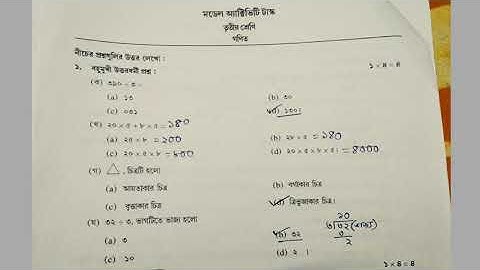 মডেল অ্যাক্টিভিটি টাস্ক
তৃতীয় শ্রেণি
গণিত
নীচের প্রশ্নগুলির উত্তর লেখো :
১. বহুমুখী উত্তরধর্মী প্রশ্ন : ১ × ৪ = ৪
(ক) ৩৯০ ÷ ৩ =
(a) ১৩ (b) ৩০
(c) ০৩১ (d) ১৩০।
(খ) ২০ × ৫ + ৮ × ৫ = ১৪০
(a) ২৫ × ৮ = ২০০ (b) ২৮ × ৫ = ১৪০
(c) ২০ × ৫ × ৮ = ৮০০ (d) ২০ × ৫ × ৮ × ৫। = ৪০০০
(গ) △, চিত্রটি হলো
(a) আয়তাকার চিত্র (b) বর্গাকার চিত্র
(c) বৃত্তাকার চিত্র (d) ত্রিভুজাকার চিত্র।
(ঘ) ৩২ ÷ ৩, ভাগটিতে ভাজ্য হলো
(a) ৩ (b) ৩২
(c) ১০ (d) ২ ।
১০
৩)৩২(ভাজ্য
৩
২
১ × ৪ = ৪